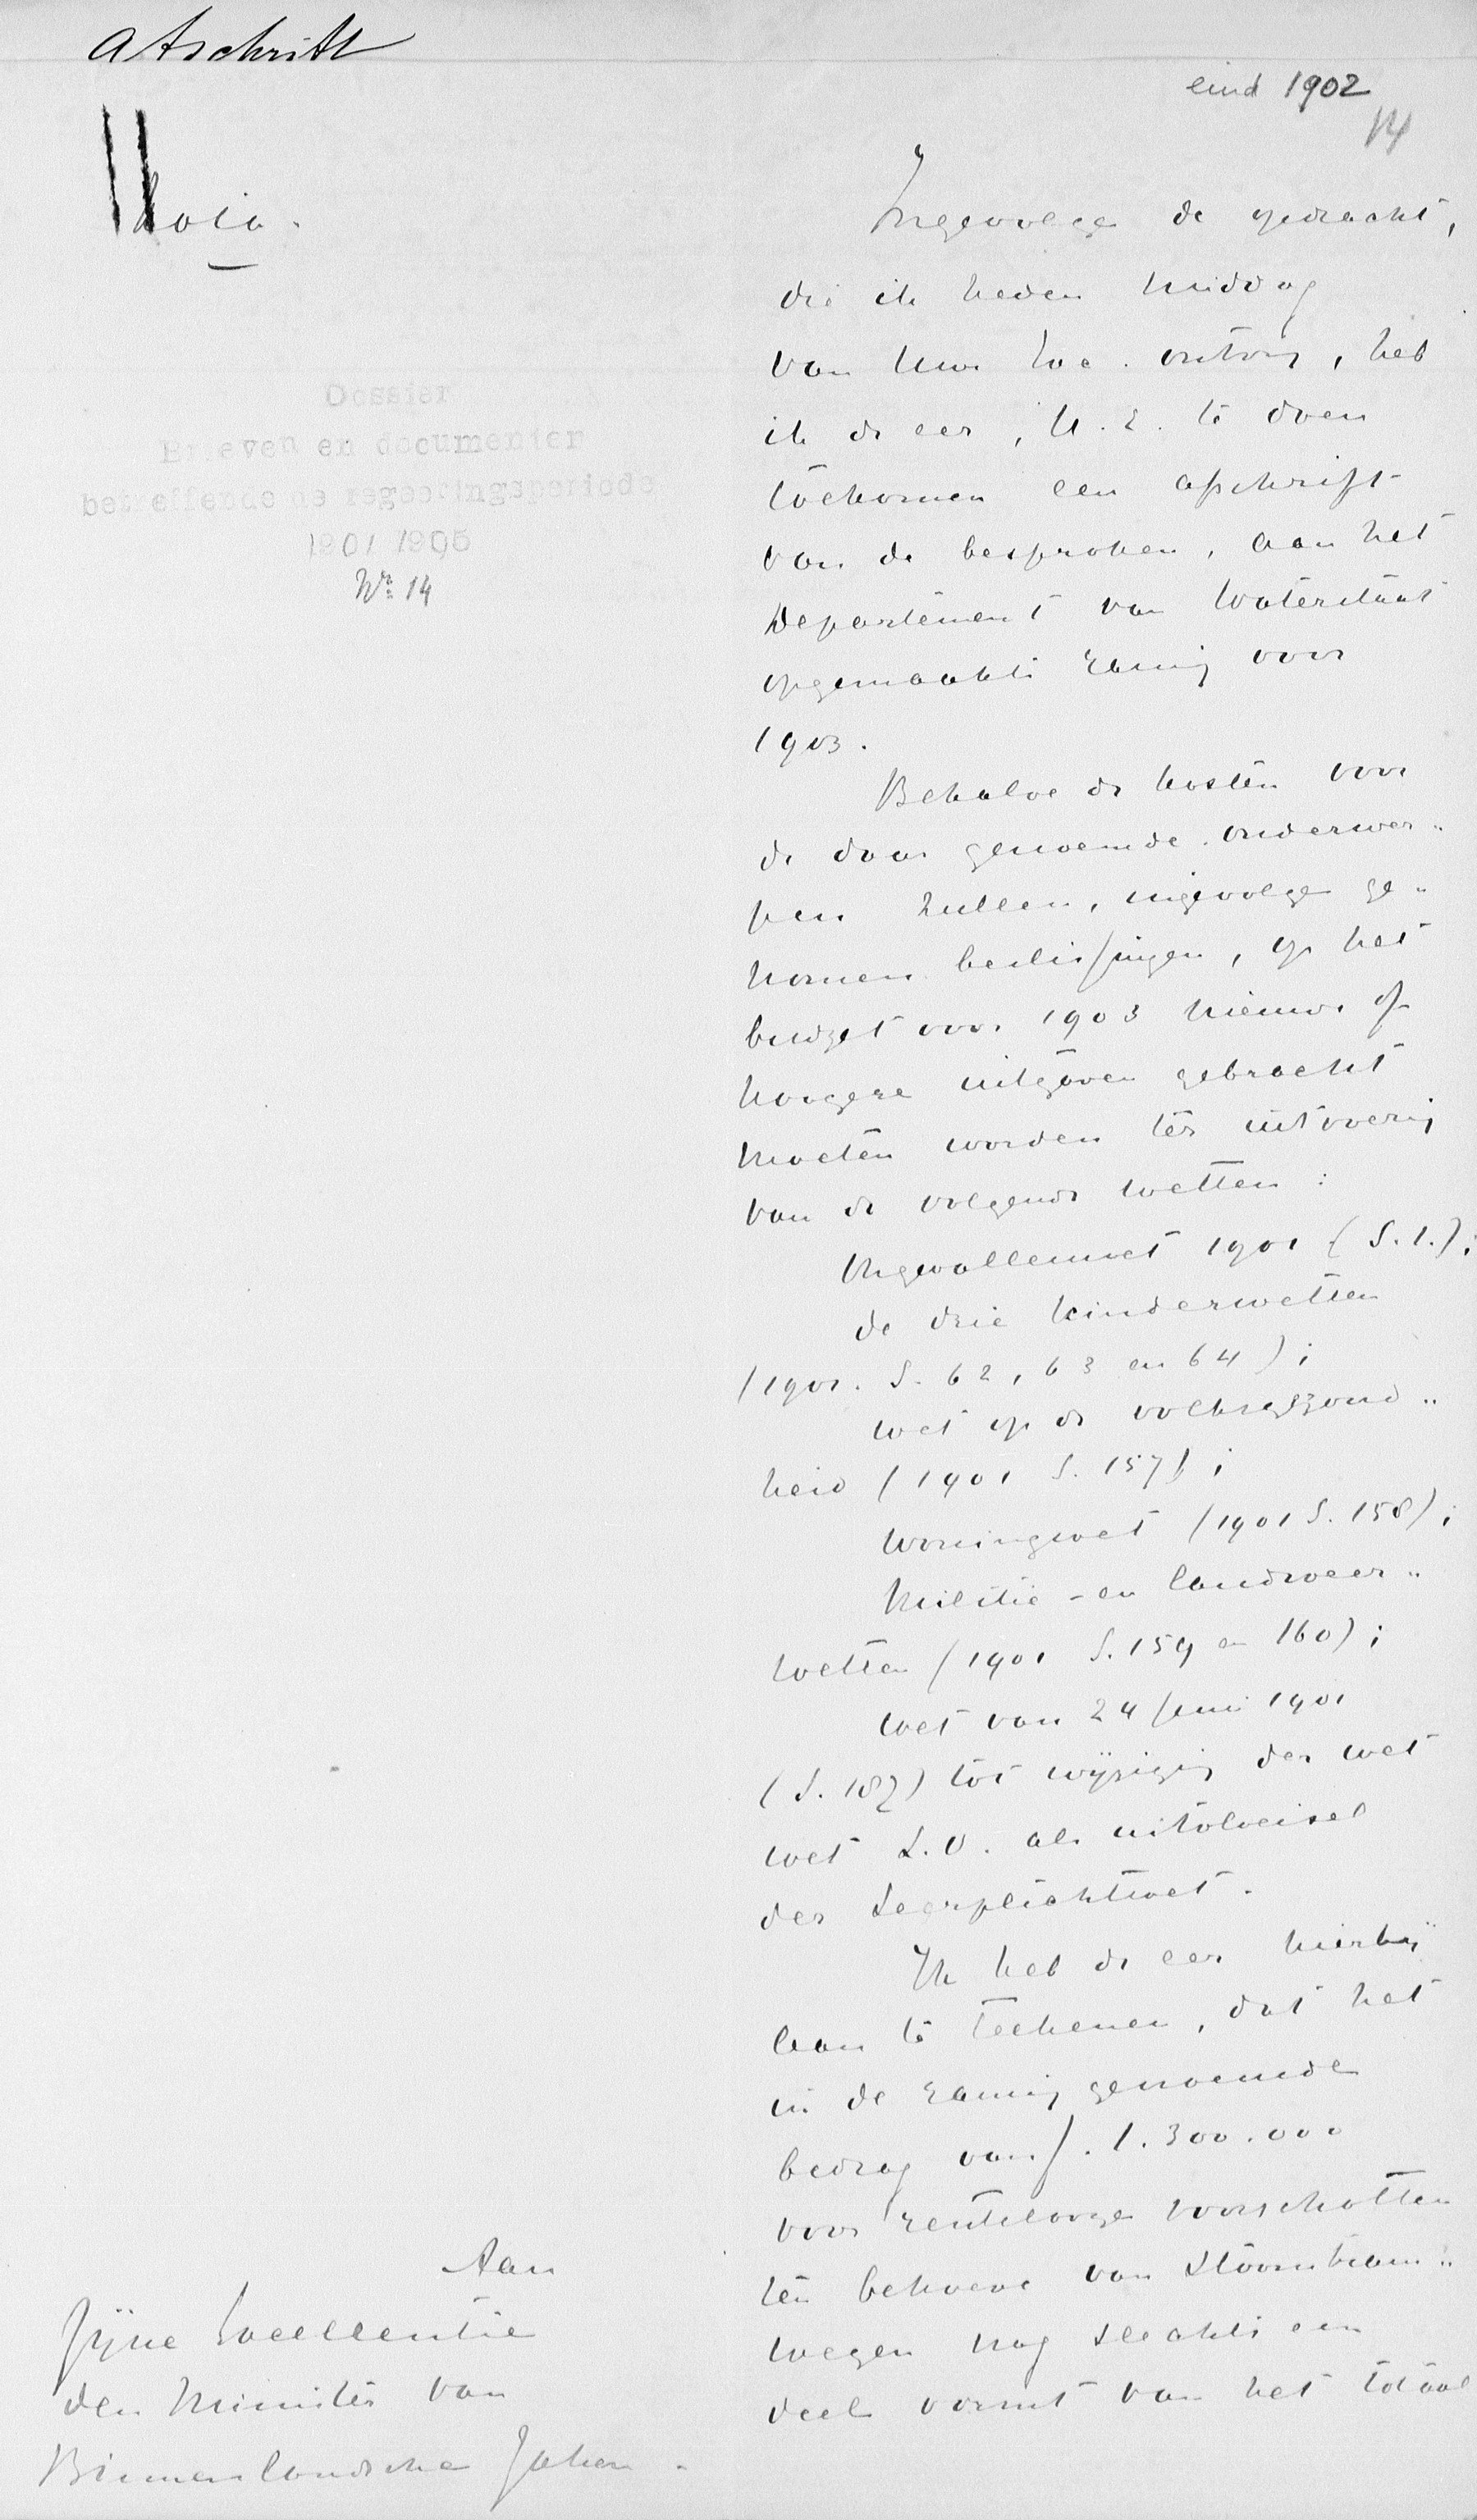 Afschrift
eind 1902
14
Nota.
Dossier
Brieven en documenten
betreffende de regeeringsperiode
1901 1905
Nr. 14
Ingevolge de opdracht,
die ik heden middag
van Uwe Exc. ontving, heb
ik de eer, U.E. te doen
toekomen een afschrift
van de besproken, aan het
Departement van Waterstaat
opgemaakte raming voor
1903.
Behalve de kosten voor
de daar genoemde onderwer„
pen zullen, ingevolge ge„
nomen beslissingen, op het
budget voor 1903 nieuwe of
hoogere uitgaven gebracht
moeten worden ter uitvoering
van de volgende wetten:
Ongevallenwet 1901 (S. 1.);
de drie kinderwetten
(1901. S. 62, 63 en 64);
wet op de volksgezond„
heid (1901 S. 157);
Woningwet (1901 S. 158);
Militie- en landweer„
wetten (1901 S. 159 en 160);
wet van 24 Juni 1901
(S. 187) tot wijziging der wet
wet L.O. als uitvloeisel
der Leerplichtwet.
Ik heb de eer hierbij
aan te teekenen, dat het
in de raming genoemde
bedrag van f. 1.300.000
voor rentelooze voorschotten
ten behoeve van Stoomtram„
wegen nog slechts een
deel vormt van het totaal
Aan
Zijne Excellentie
den Minister van
Binnenlandsche Zaken.